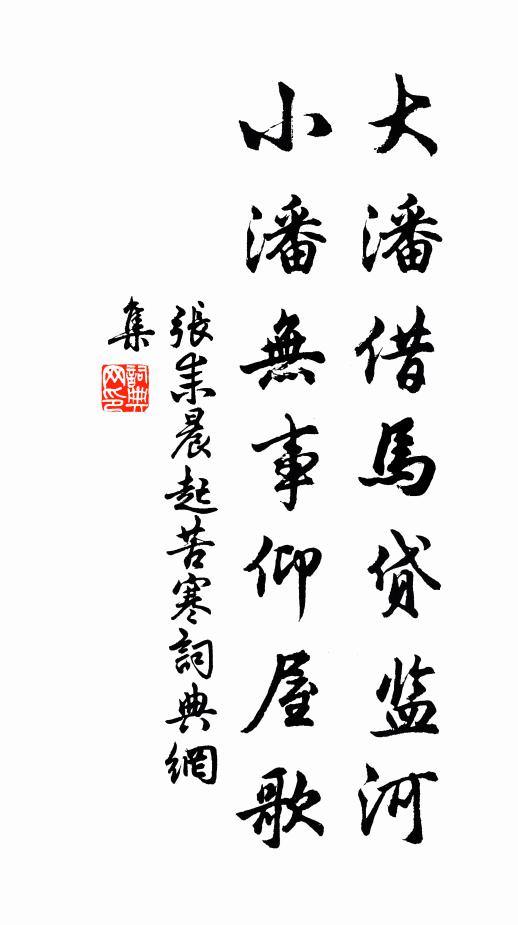 大潘借馬貸监河
小潘無事仰屋歌
張耒晨起苦寒詞典網
集
詞典
网印